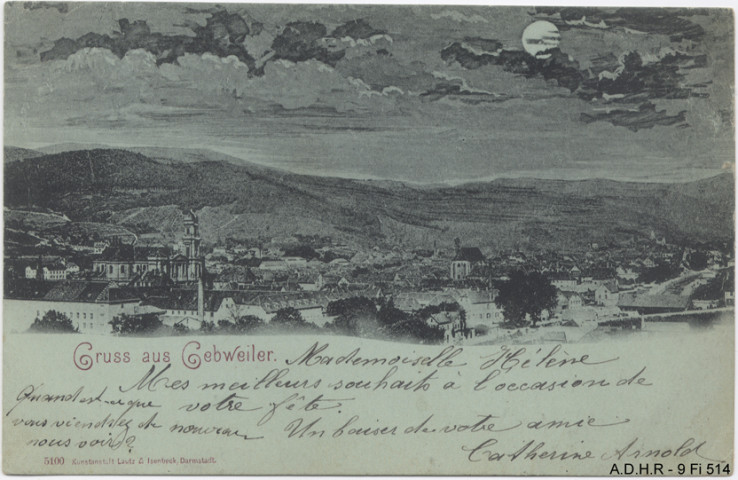 Gruss aus Gebweiler. Mademoiselle Hélène
Mes meilleurs souhaits à l'occasion de
votre fête.
Un baiser de votre amie
Catherine Arnold
Quand est-ce que
vous viendrez de nouveau
nous voir?
5100 Kunstanstalt Lautz & Isenbeck, Darmstadt.
A.D.H.R - 9 Fi 514